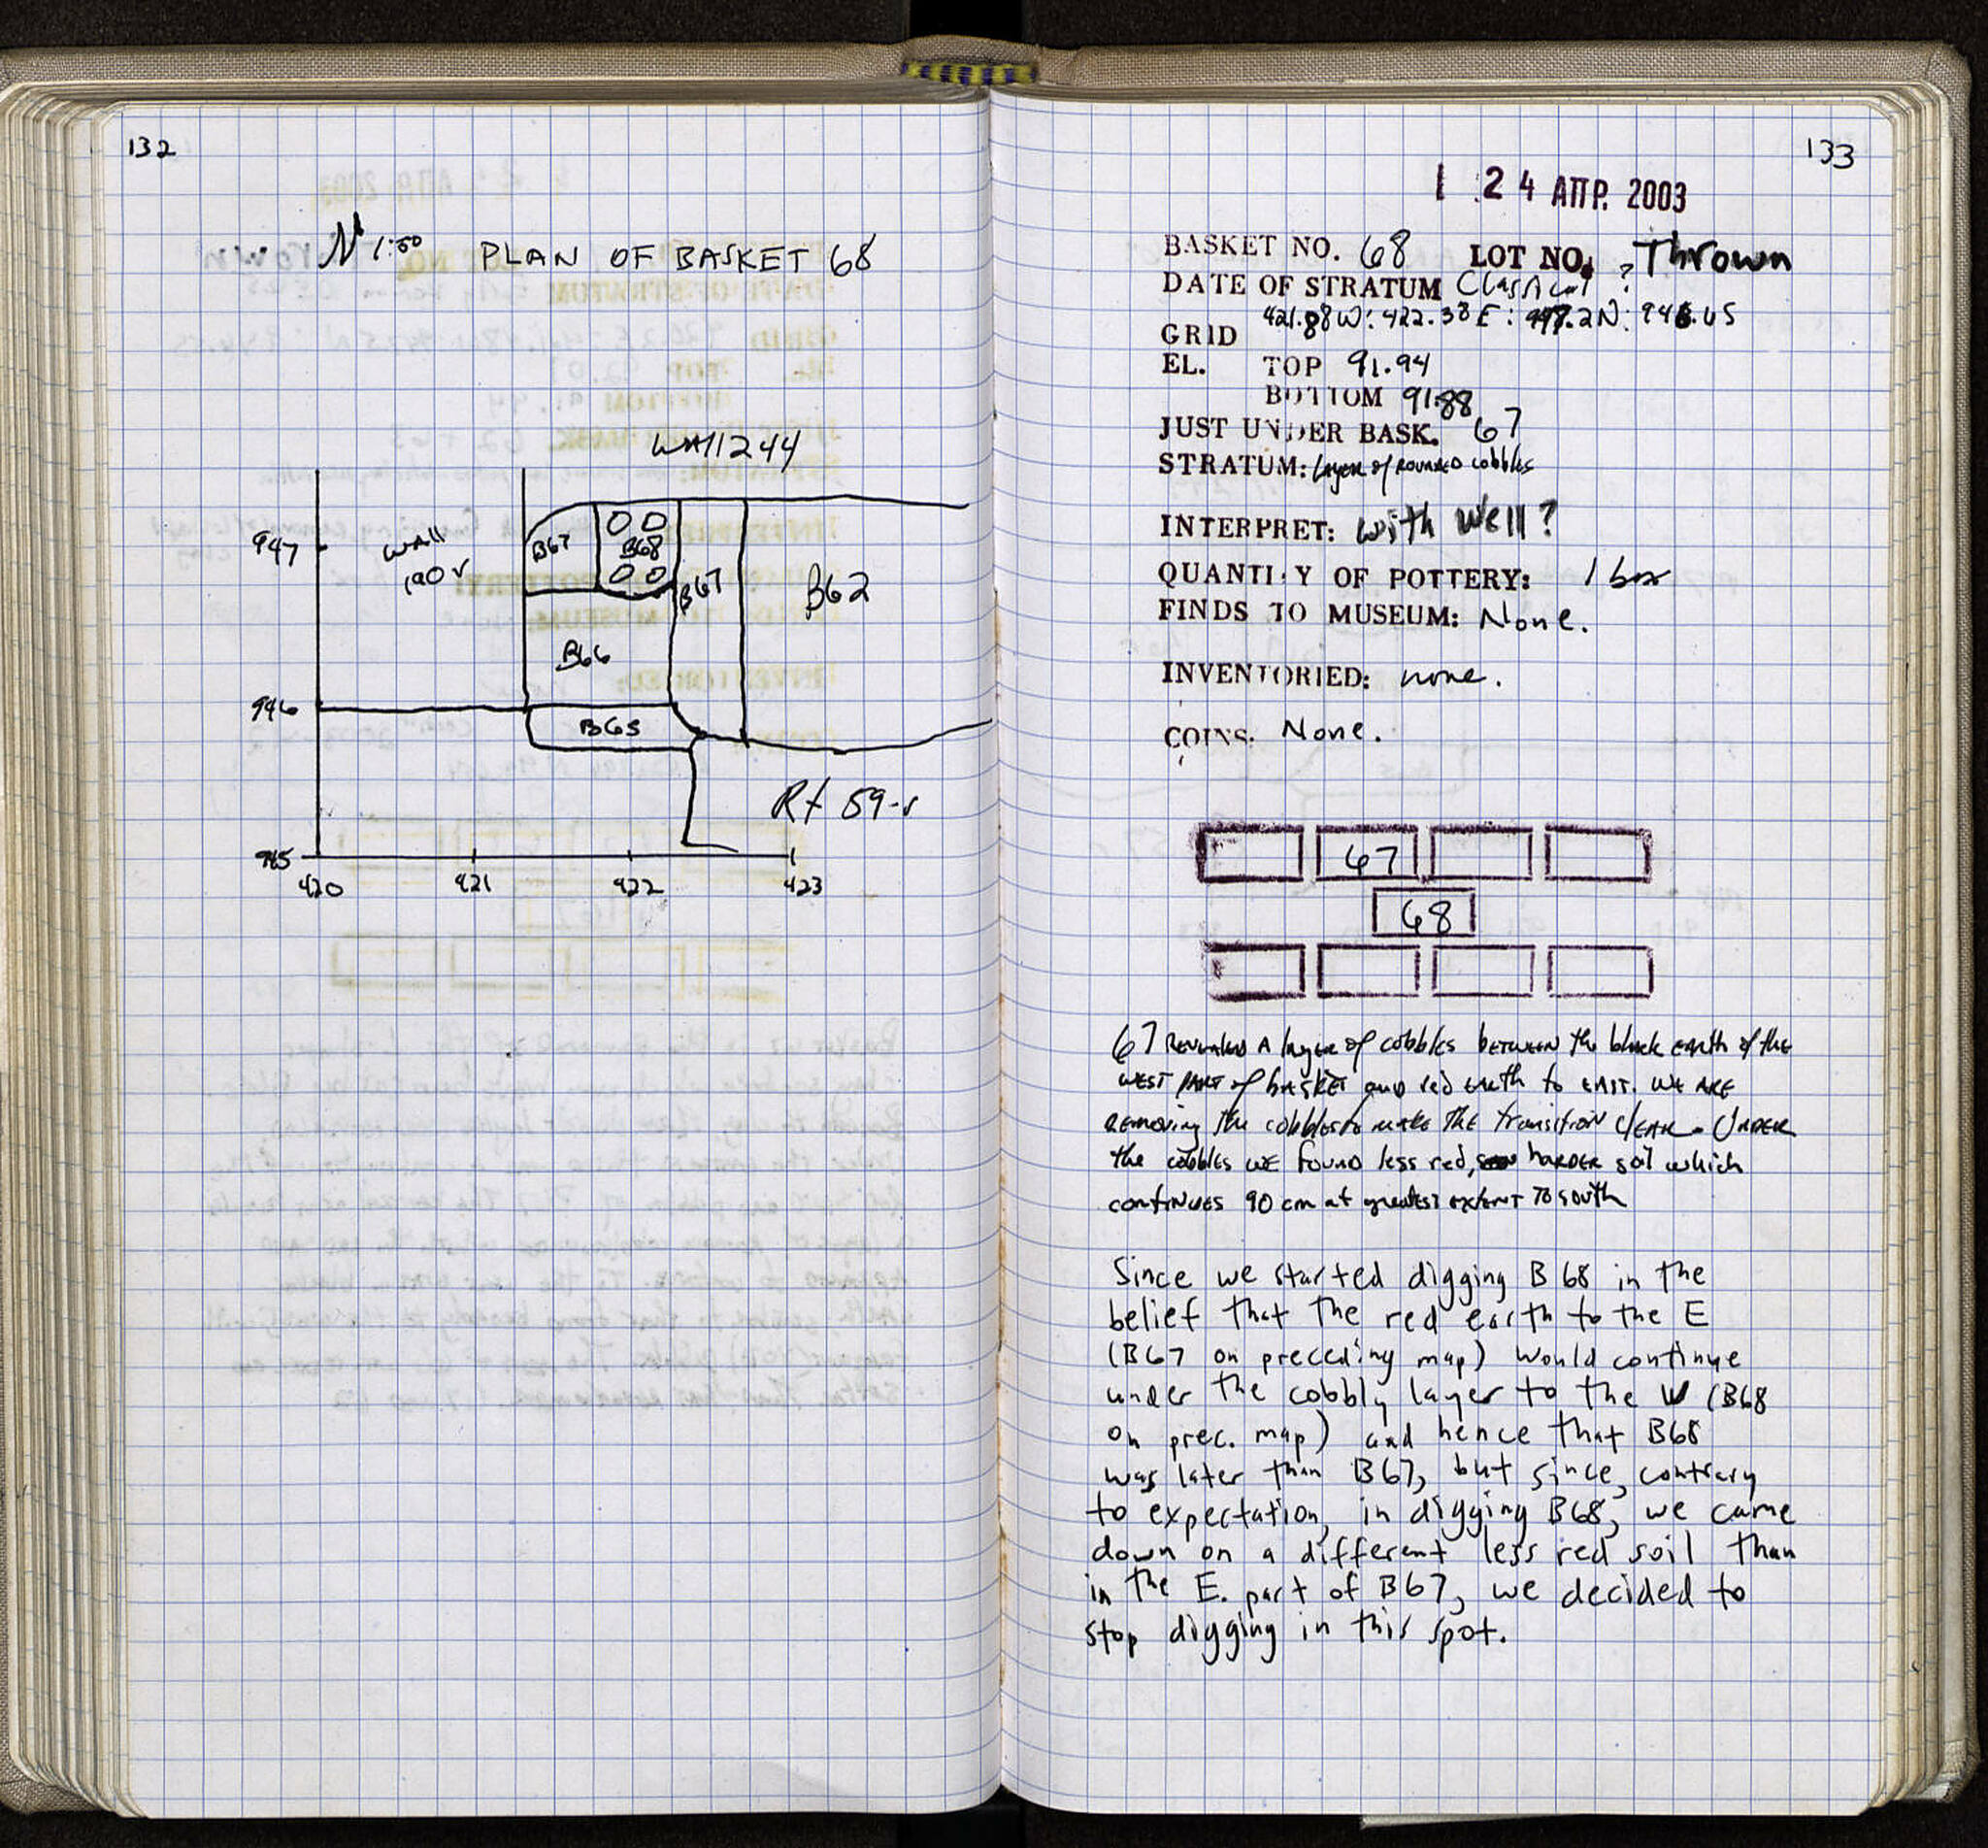 132
N 1:50 PLAN OF BASKET 68
Wall 244
947
Wall
190 v
B67
B68
B67
B62
B66
946
B65
Rt 59-v
945
420
421
422
423
133
24 ΑΠΡ. 2003
BASKET NO. 68 LOT NO. Thrown
DATE OF STRATUM Classical ?
GRID 421.88W: 422.38E: 947.2N: 946.65
EL. TOP 91.94
BOTTOM 91.88
JUST UNDER BASK. 67
STRATUM: layer of rounded cobbles
INTERPRET: with Well?
QUANTITY OF POTTERY: 1 box
FINDS TO MUSEUM: None.
INVENTORIED: none.
COINS. None.
67
68
67 REVEALED A layer of cobbles BETWEEN the black earth of the
WEST PART of basket and red earth to EAST. WE ARE
REMOVING the cobbles to make THE transition CLEAR. UNDER
the cobbles WE found less red, HARDER soil which
continues 90 cm at greatest extent TO South
Since we started digging B 68 in the
belief that the red earth to the E
(B67 on preceding map) would continue
under the cobbly layer to the W (B68
on prec. map) and hence that B68
was later than B67, but since, contrary
to expectation, in digging B68, we came
down on a different less red soil than
in the E. part of B67, we decided to
stop digging in this spot.